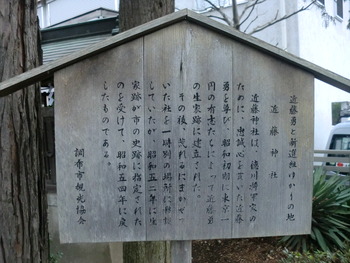 近藤勇と新選組ゆかりの地
近藤神社
近藤神社は、徳川将軍家の
ために、忠誠心を貫いた近藤
勇を尊び、昭和初期に東京一
円の有志たちによって近藤勇
の生家跡に建立された。
その後、荒れるにまかせて
いた社を一時別の場所に移転
していたが、昭和五二年に生
家跡が市の史跡に指定された
のを受けて、昭和五四年に戻
したものである。
調布市観光協会